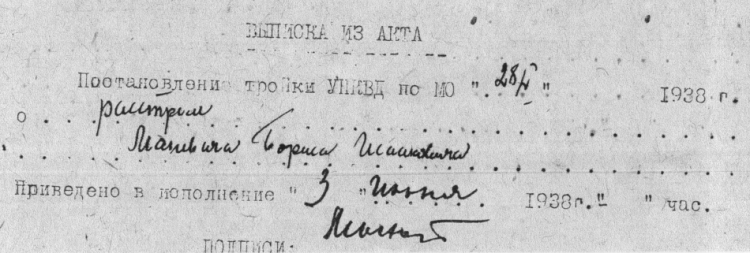 ВЫПИСКА ИЗ АКТА
Постановлени тройки УНКВД по МО "28/V" 1938 г.
о расстреле
Маневича Бориса Исааковича
Приведено в исполнение "3" июня 1938г." " час.
ПОДПИСИ: